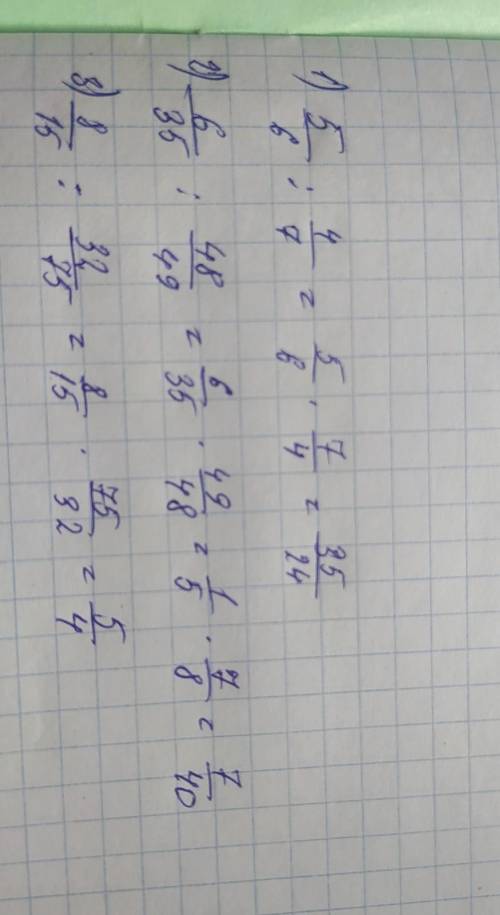 1) 5/6 : 4/7 = 5/6 · 7/4 = 35/24
2) 6/35 : 48/49 = 6/35 · 49/48 = 1/5 · 7/8 = 7/40
3) 8/15 : 32/75 = 8/15 · 75/32 = 5/4